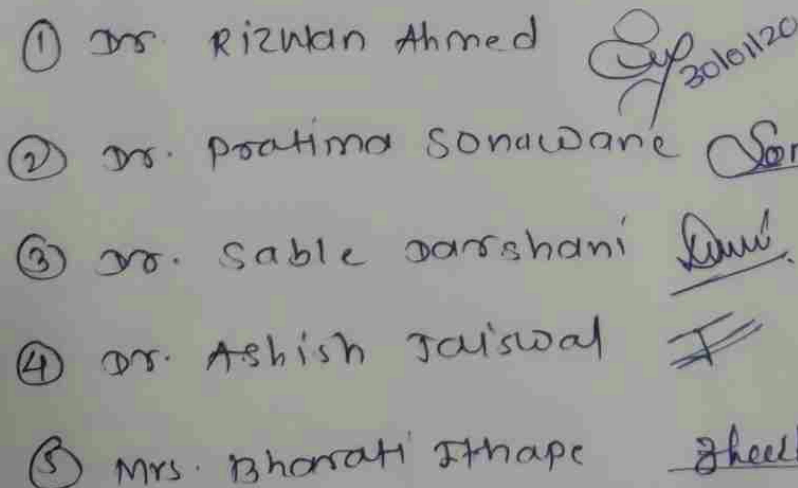 ① Dr. Rizwan Ahmed 30/01/20
② Dr. Pratima Sonawane
③ Dr. Sable Darshani
④ Dr. Ashish Jaiswal
⑤ Mrs. Bharati Ithape